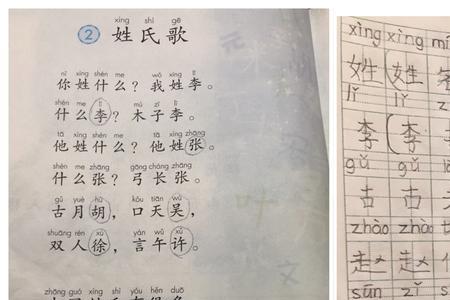 xìng shì gē
② 姓氏歌
nǐ xìng shén me wǒ xìng lǐ
你姓什么？我姓李。
shén me lǐ mù zǐ lǐ
什么李？木子李。
tā xìng shén me tā xìng zhāng
他姓什么？他姓张。
shén me zhāng gōng cháng zhāng
什么张？弓长张。
gǔ yuè hú kǒu tiān wú
古月胡，口天吴，
shuāng rén xú yán wǔ xǔ
双人徐，言午许。
zhōng guó xìng shì yǒu hěn duō
xìng xìng
姓（姓
lǐ lǐ
李（李
gǔ gǔ
古 古
zhào zhào
赵 赵
sūn zǐ